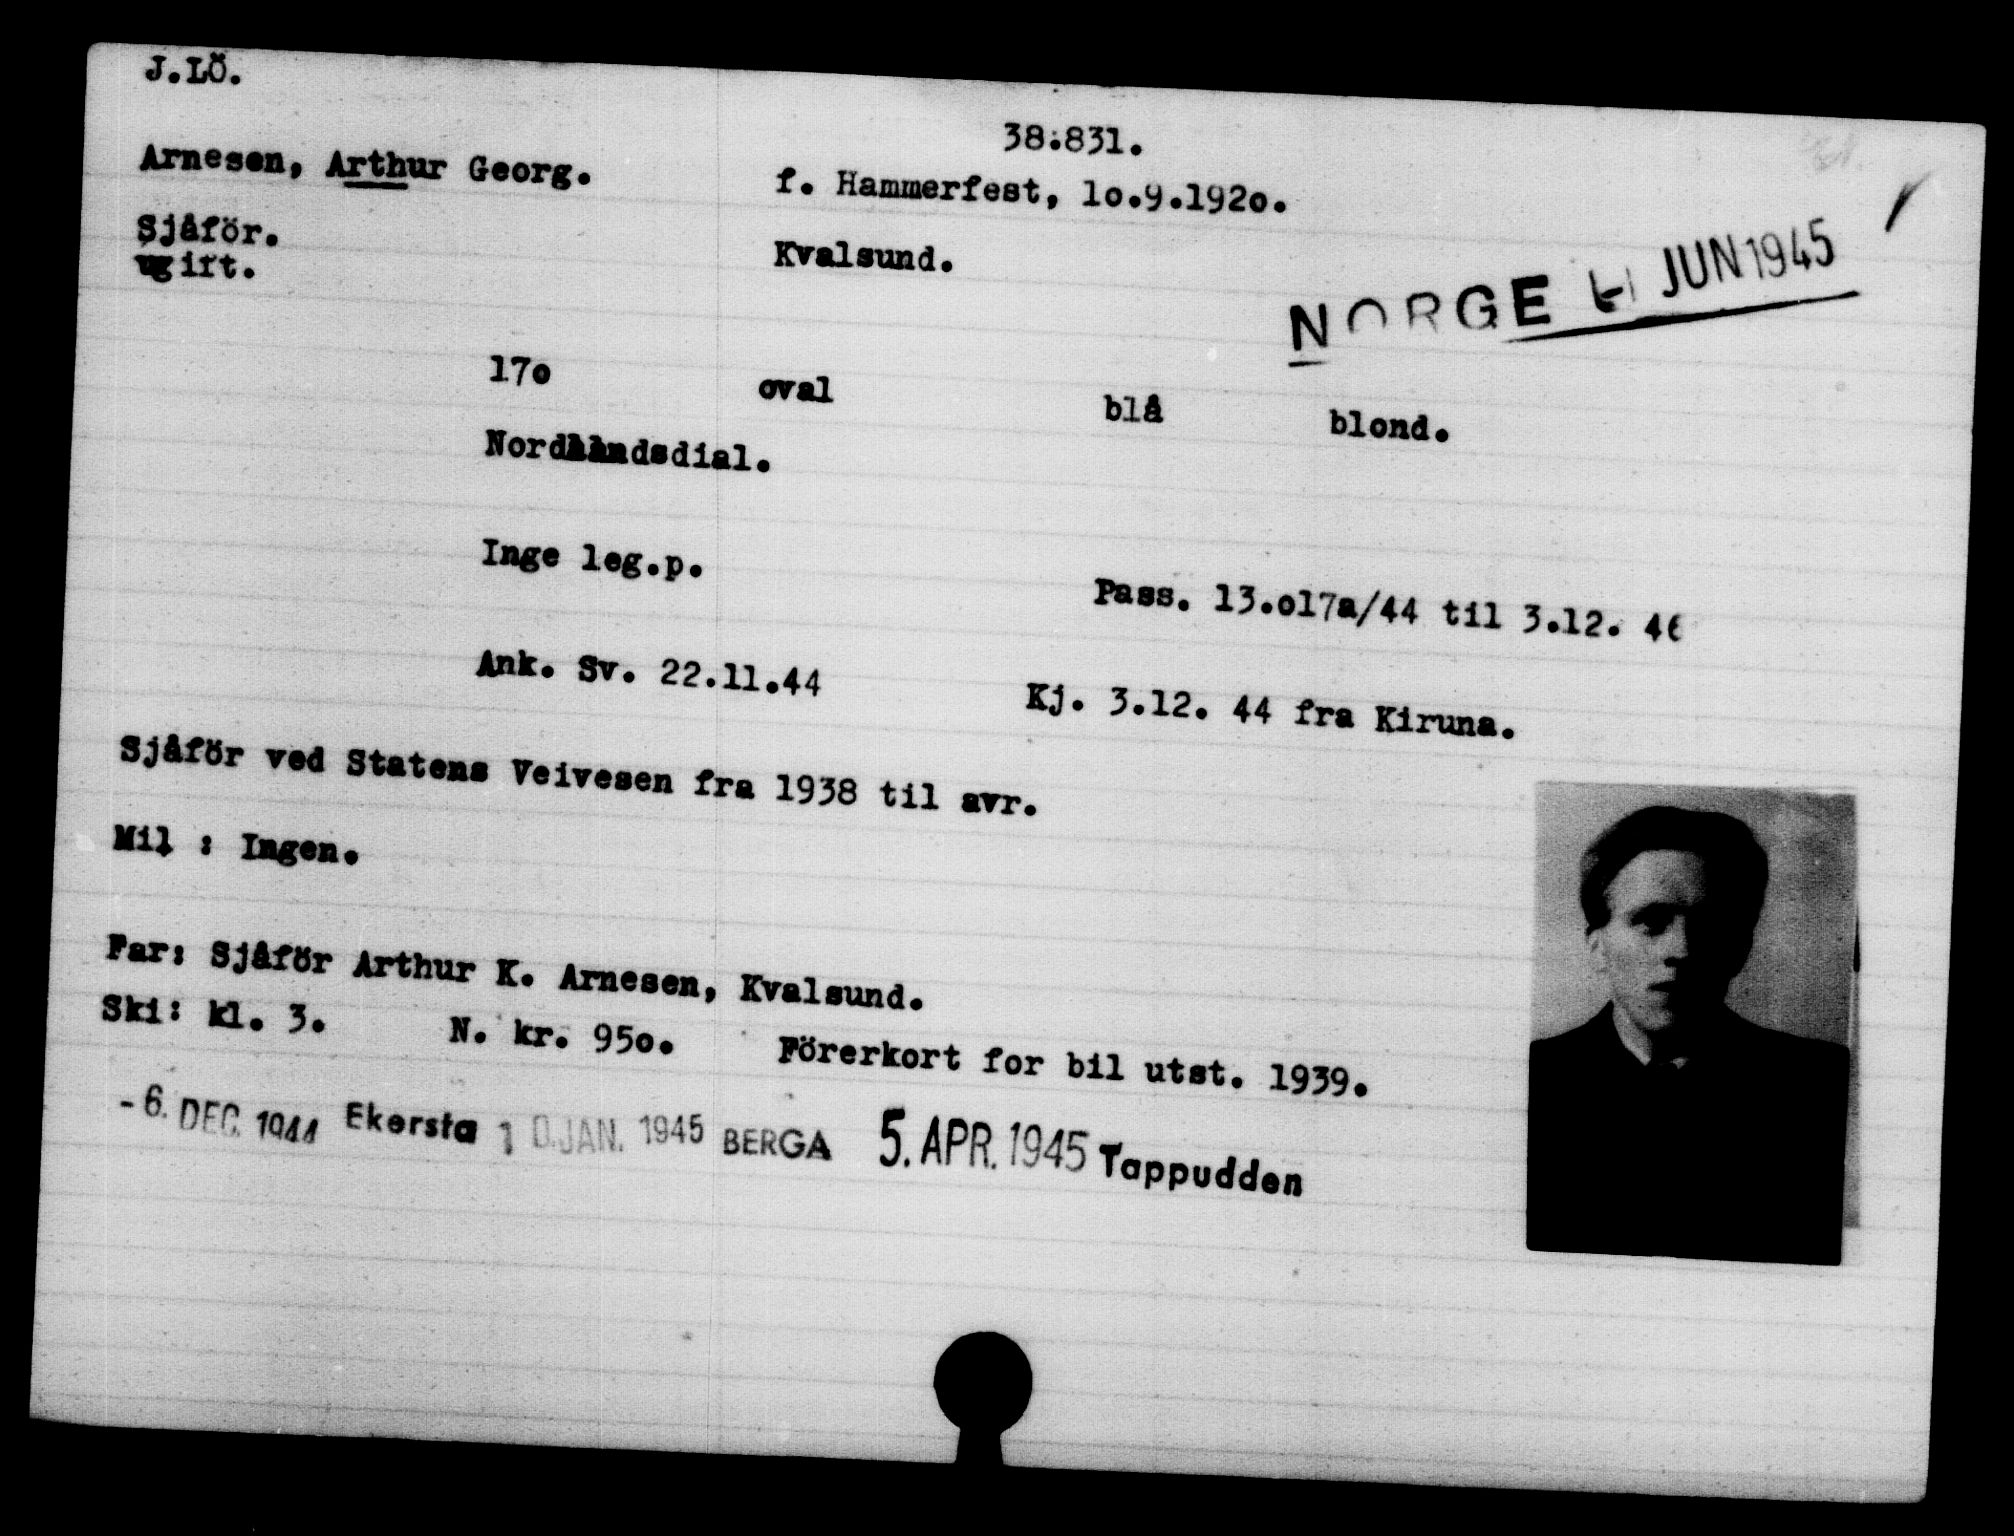 J.LÖ.
38.831.
Arnesen, Arthur Georg. f. Hammerfest, lo.9.192o.
Sjåför. Kvalsund.
ugift.
NORGE JUN 1945
17o oval blå blond.
Nordlandsdial.
Inge leg.p.
Pass. 13.o17a/44 til 3.12. 46
Ank. Sv. 22.11.44 Kj. 3.12. 44 fra Kiruna.
Sjåför ved Statens Veivesen fra 1938 til avr.
Mil : Ingen.
Far: Sjåför Arthur K. Arnesen, Kvalsund.
Ski: kl. 3. N. kr. 95o. Förerkort for bil utst. 1939.
-6. DEC. 1944 Ekersta 10. JAN. 1945 BERGA 5. APR. 1945 Tappudden